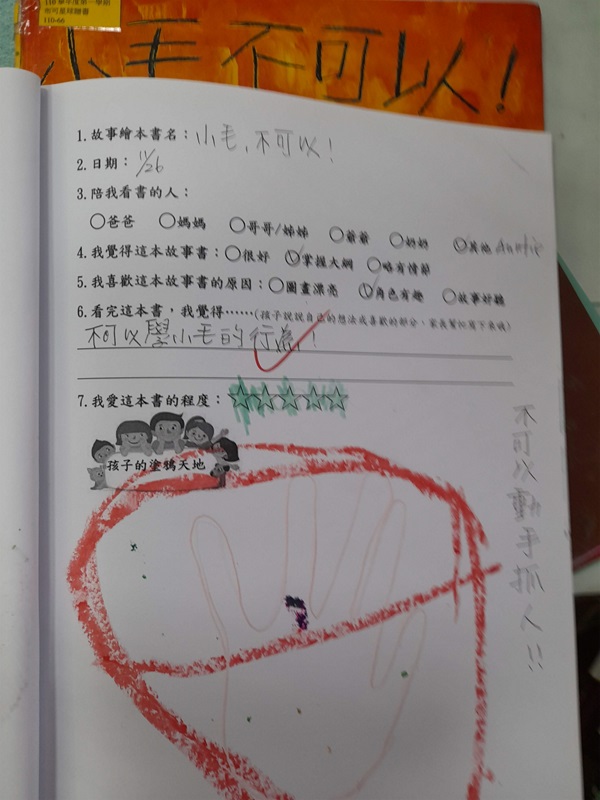 110學年度第一學期
110-66
小毛不可以!
1.故事繪本書名：小毛,不可以!
2.日期：11/26
3.陪我看書的人：
○爸爸 ○媽媽 ○哥哥/姊姊 ○爺爺 ○奶奶 ○其他 Auntie
4.我覺得這本故事書：○很好 ○掌握大綱 ○略有情節
5.我喜歡這本故事書的原因：○圖畫漂亮 ○角色有趣 ○故事好聽
6.看完這本書，我覺得……(孩子說說自己的想法或喜歡的部分，家長幫忙寫下來哦)
不可以學小毛的行為!
7.我愛這本書的程度：☆☆☆☆☆
孩子的塗鴉天地
不可以動手抓人!!